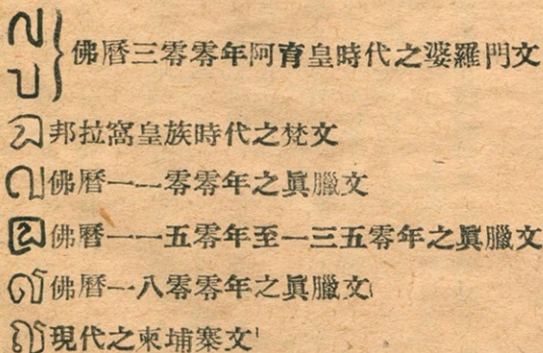 佛曆三零零年阿育皇時代之婆羅門文
邦拉窩皇族時代之梵文
佛曆一一零零年之眞臘文
佛曆一一五零年至一三五零年之眞臘文
佛曆一八零零年之眞臘文
現代之柬埔寨文